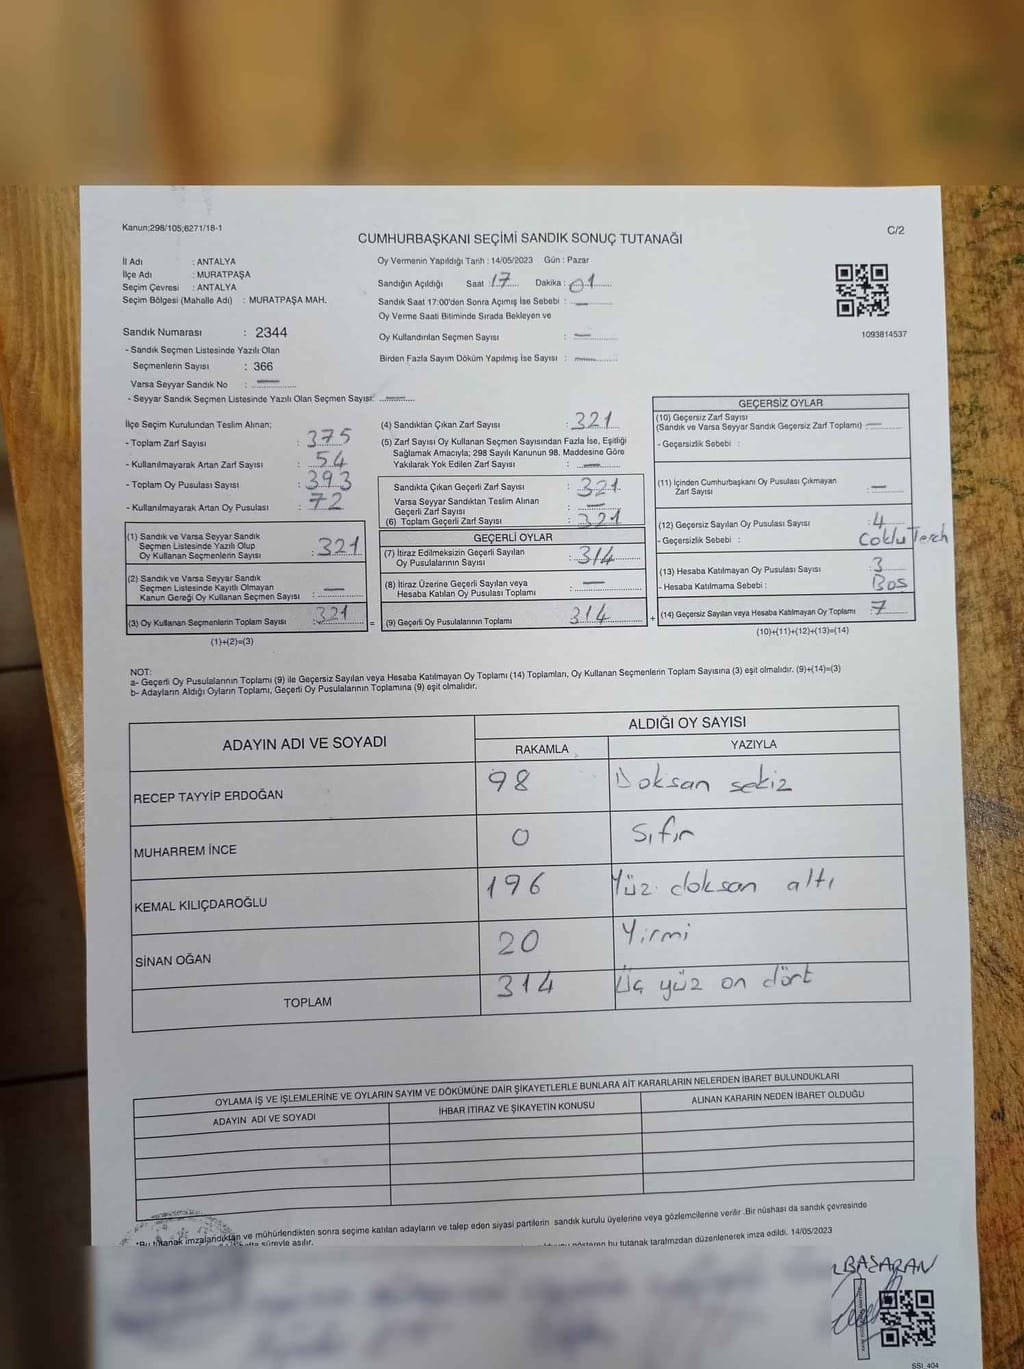 Kanun;298/105;6271/18-1
C/2
CUMHURBAŞKANI SEÇİMİ SANDIK SONUÇ TUTANAĞI
İl Adı : ANTALYA
İlçe Adı : MURATPAŞA
Seçim Çevresi : ANTALYA
Seçim Bölgesi (Mahalle Adı) : MURATPAŞA MAH.
Sandık Numarası : 2344
- Sandık Seçmen Listesinde Yazılı Olan
Seçmenlerin Sayısı : 366
Varsa Seyyar Sandık No :
- Seyyar Sandık Seçmen Listesinde Yazılı Olan Seçmen Sayısı:
Oy Vermenin Yapıldığı Tarih : 14/05/2023 Gün : Pazar
Sandığın Açıldığı Saat : 17 Dakika : 01
Sandık Saat 17:00'den Sonra Açımış İse Sebebi :
Oy Verme Saati Bitiminde Sırada Bekleyen ve
Oy Kullandırılan Seçmen Sayısı :
Birden Fazla Sayım Döküm Yapılmış İse Sayısı :
1093814537
İlçe Seçim Kurulundan Teslim Alınan;
- Toplam Zarf Sayısı : 375
- Kullanılmayarak Artan Zarf Sayısı : 54
- Toplam Oy Pusulası Sayısı : 393
- Kullanılmayarak Artan Oy Pusulası : 72
(1) Sandık ve Varsa Seyyar Sandık
Seçmen Listesinde Yazılı Olup
Oy Kullanan Seçmenlerin Sayısı : 321
(2) Sandık ve Varsa Seyyar Sandık
Seçmen Listesinde Kayıtlı Olmayan
Kanun Gereği Oy Kullanan Seçmen Sayısı :
(3) Oy Kullanan Seçmenlerin Toplam Sayısı : 321
(1)+(2)=(3)
(4) Sandıktan Çıkan Zarf Sayısı : 321
(5) Zarf Sayısı Oy Kullanan Seçmen Sayısından Fazla İse, Eşitliği
Sağlamak Amacıyla; 298 Sayılı Kanunun 98. Maddesine Göre
Yakılarak Yok Edilen Zarf Sayısı :
Sandıkta Çıkan Geçerli Zarf Sayısı : 321
Varsa Seyyar Sandıktan Teslim Alınan
Geçerli Zarf Sayısı :
(6) Toplam Geçerli Zarf Sayısı : 321
GEÇERLİ OYLAR
(7) İtiraz Edilmeksizin Geçerli Sayılan
Oy Pusulalarının Sayısı : 314
(8) İtiraz Üzerine Geçerli Sayılan veya
Hesaba Katılan Oy Pusulası Toplamı :
= (9) Geçerli Oy Pusulalarının Toplamı 314 +
GEÇERSİZ OYLAR
(10) Geçersiz Zarf Sayısı
(Sandık ve Varsa Seyyar Sandık Geçersiz Zarf Toplamı) :
- Geçersizlik Sebebi :
(11) İçinden Cumhurbaşkanı Oy Pusulası Çıkmayan
Zarf Sayısı :
(12) Geçersiz Sayılan Oy Pusulası Sayısı : 4
- Geçersizlik Sebebi : Çoklu Tercih
(13) Hesaba Katılmayan Oy Pusulası Sayısı : 3
- Hesaba Katılmama Sebebi : Bos
(14) Geçersiz Sayılan veya Hesaba Katılmayan Oy Toplamı : 7
(10)+(11)+(12)+(13)=(14)
NOT:
a- Geçerli Oy Pusulalarının Toplamı (9) ile Geçersiz Sayılan veya Hesaba Katılmayan Oy Toplamı (14) Toplamları, Oy Kullanan Seçmenlerin Toplam Sayısına (3) eşit olmalıdır. (9)+(14)=(3)
b- Adayların Aldığı Oyların Toplamı, Geçerli Oy Pusulalarının Toplamına (9) eşit olmalıdır.
ADAYIN ADI VE SOYADI
ALDIĞI OY SAYISI
RAKAMLA YAZIYLA
RECEP TAYYİP ERDOĞAN 98 Doksan sekiz
MUHARREM İNCE 0 Sıfır
KEMAL KILIÇDAROĞLU 196 Yüz doksan altı
SİNAN OĞAN 20 Yirmi
TOPLAM 314 Üç yüz on dört
OYLAMA İŞ VE İŞLEMLERİNE VE OYLARIN SAYIM VE DÖKÜMÜNE DAİR ŞİKAYETLERLE BUNLARA AİT KARARLARIN NELERDEN İBARET BULUNDUKLARI
ADAYIN ADI VE SOYADI İHBAR İTİRAZ VE ŞİKAYETİN KONUSU ALINAN KARARIN NEDEN İBARET OLDUĞU
*Bu tutanak imzalandıktan ve mühürlendikten sonra seçime katılan adayların ve talep eden siyasi partilerin sandık kurulu üyelerine veya gözlemcilerine verilir .Bir nüshası da sandık çevresinde
süreyle asılır. gösteren bu tutanak tarafımzdan düzenlenerek imza edildi. 14/05/2023
BAŞARAN
SSI_404